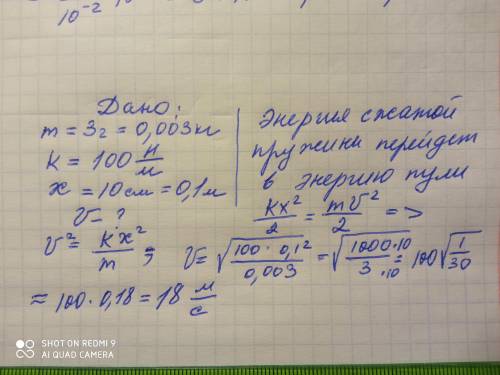 10⁻²
Дано:
m = 3г = 0,003кг
k = 100 Н/м
x = 10 см = 0,1м
V = ?
Энергия сжатой
пружины перейдет
в энергию пули
kx²/2 = mV²/2 =>
V² = kx²/m ; V = √(100 · 0,1²/0,003) = √(1000·10/3·10) = 100√(1/30)
≈ 100 · 0,18 = 18 м/с
SHOT ON REDMI 9
AI QUAD CAMERA